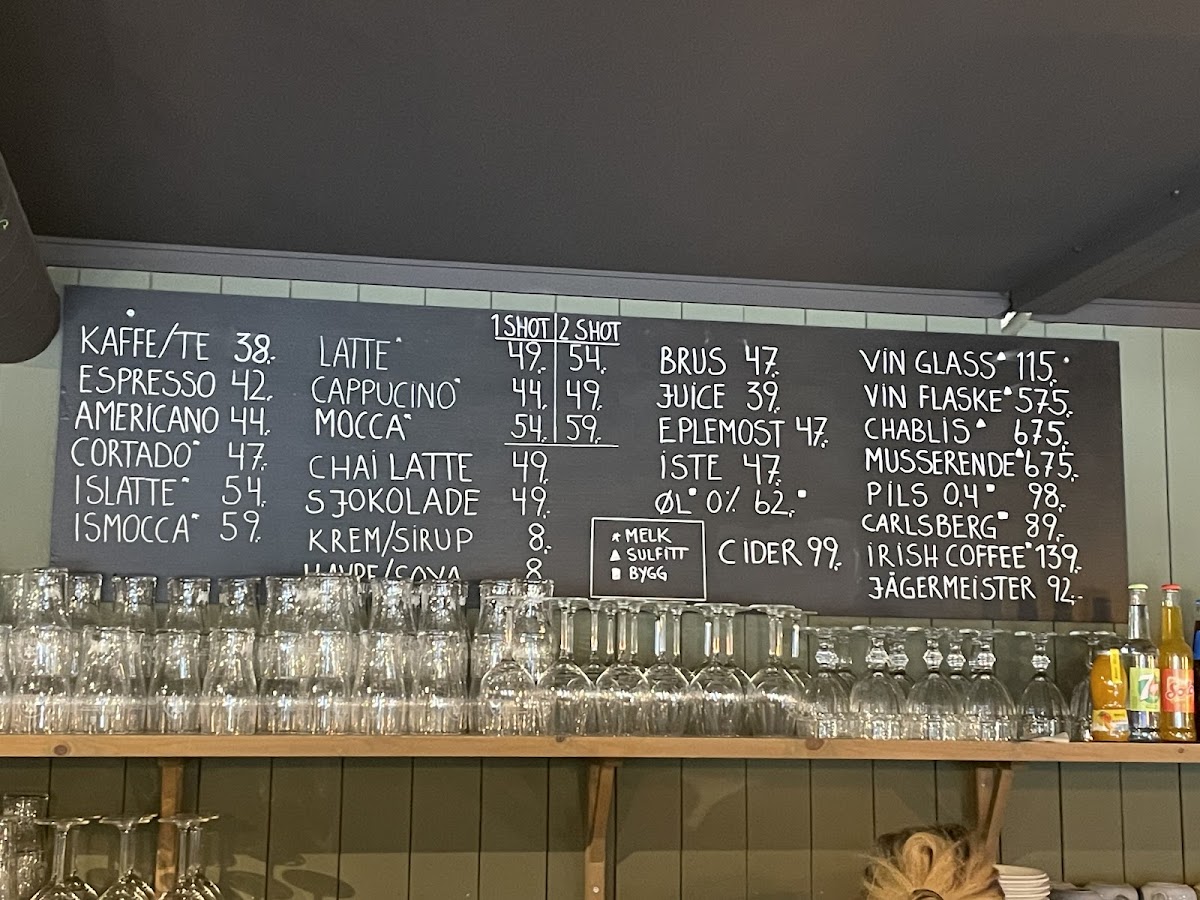 KAFFE/TE 38,-
ESPRESSO 42,-
AMERICANO 44,-
CORTADO* 47,-
ISLATTE* 54,-
ISMOCCA* 59,-
1 SHOT 2 SHOT
LATTE* 49,- 54,-
CAPPUCINO* 44,- 49,-
MOCCA* 54,- 59,-
CHAI LATTE 49,-
SJOKOLADE 49,-
KREM/SIRUP 8,-
HAVRE/SOYA 8
BRUS 47,-
JUICE 39,-
EPLEMOST 47,-
ISTE 47,-
ØL■ 0% 62,-■
* MELK
▲ SULFITT
■ BYGG
CIDER 99,-
VIN GLASS▲ 115,-
VIN FLASKE▲ 575,-
CHABLIS▲ 675,-
MUSSERENDE▲ 675,-
PILS 0,4■ 98,-
CARLSBERG■ 89,-
IRISH COFFEE* 139,-
JÄGERMEISTER 92,-
7